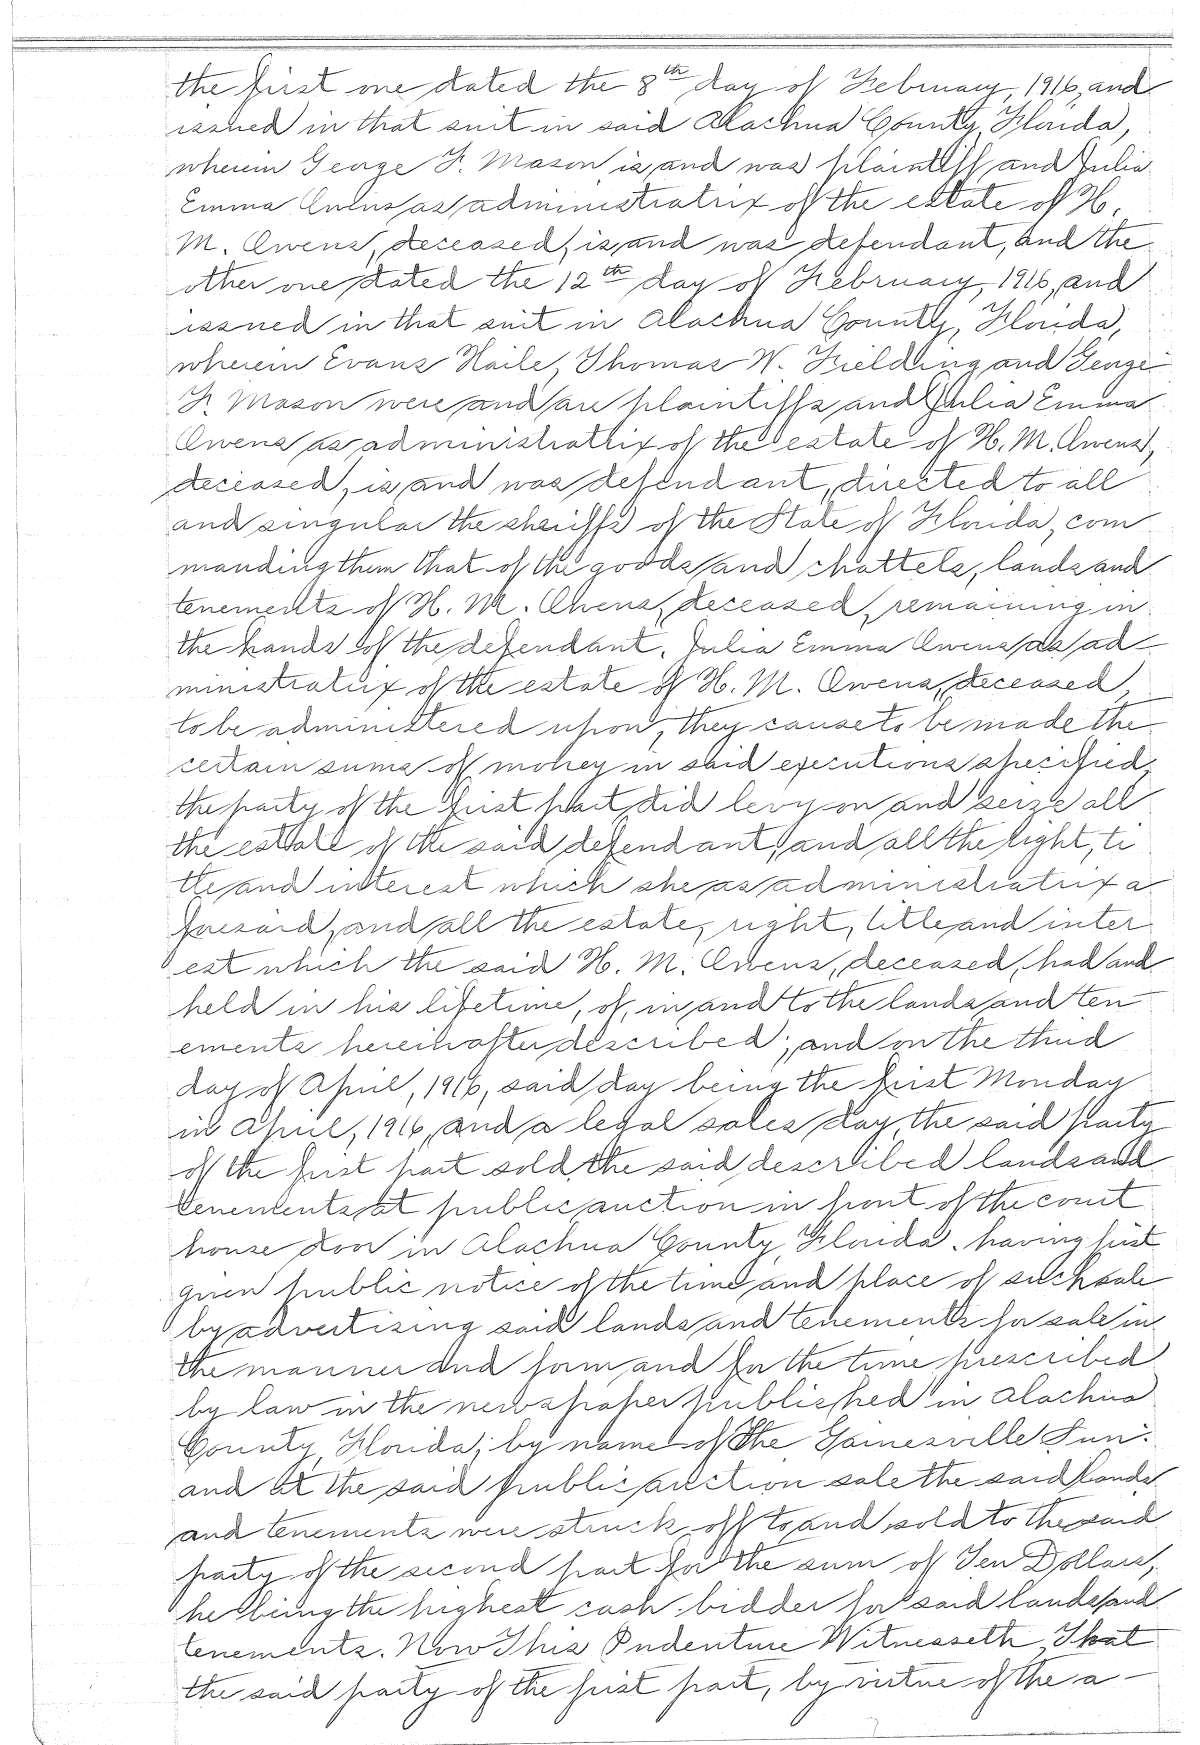 the first one dated the 8th day of February, 1916, and
issued in that suit in said Alachua County, Florida,
wherein George F. Mason is and was plaintiff and Julia
Emma Owens as administratrix of the estate of H.
M. Owens, deceased, is and was defendant, and the
other one dated the 12th day of February, 1916, and
issued in that suit in Alachua County, Florida,
wherein Evans Haile, Thomas W. Fielding and George
F. Mason were and are plaintiffs and Julia Emma
Owens as administratrix of the estate of H. M. Owens,
deceased, is and was defendant, directed to all
and singular the sheriffs of the State of Florida, com
manding them that of the goods and chattels, lands and
tenements of H. M. Owens, deceased, remaining in
the hands of the defendant, Julia Emma Owens as ad-
ministratrix of the estate of H. M. Owens, deceased,
to be administered upon, they cause to be made the
certain sums of money in said executions specified,
the party of the first part did levy on and seize all
the estate of the said defendant, and all the right, ti
tle and interest which she as administratrix a
foresaid, and all the estate, right, title and inter
est which the said H. M. Owens, deceased, had and
held in his lifetime, of, in and to the lands and ten-
ements hereinafter described; and on the third
day of April, 1916, said day being the first Monday
in April, 1916, and a legal sales day, the said party
of the first part sold the said described lands and
tenements at public auction in front of the court
house door in Alachua County, Florida, having first
given public notice of the time and place of such sale
by advertising said lands and tenements for sale in
the manner and form and for the time prescribed
by law in the newspaper published in Alachua
County, Florida, by name of The Gainesville Sun:
and at the said public auction sale the said lands
and tenements were struck off to, and sold to the said
party of the second part for the sum of Ten Dollars,
he being the highest cash bidder for said lands and
tenements. Now This Indenture Witnesseth, That
the said party of the first part, by virtue of the a-